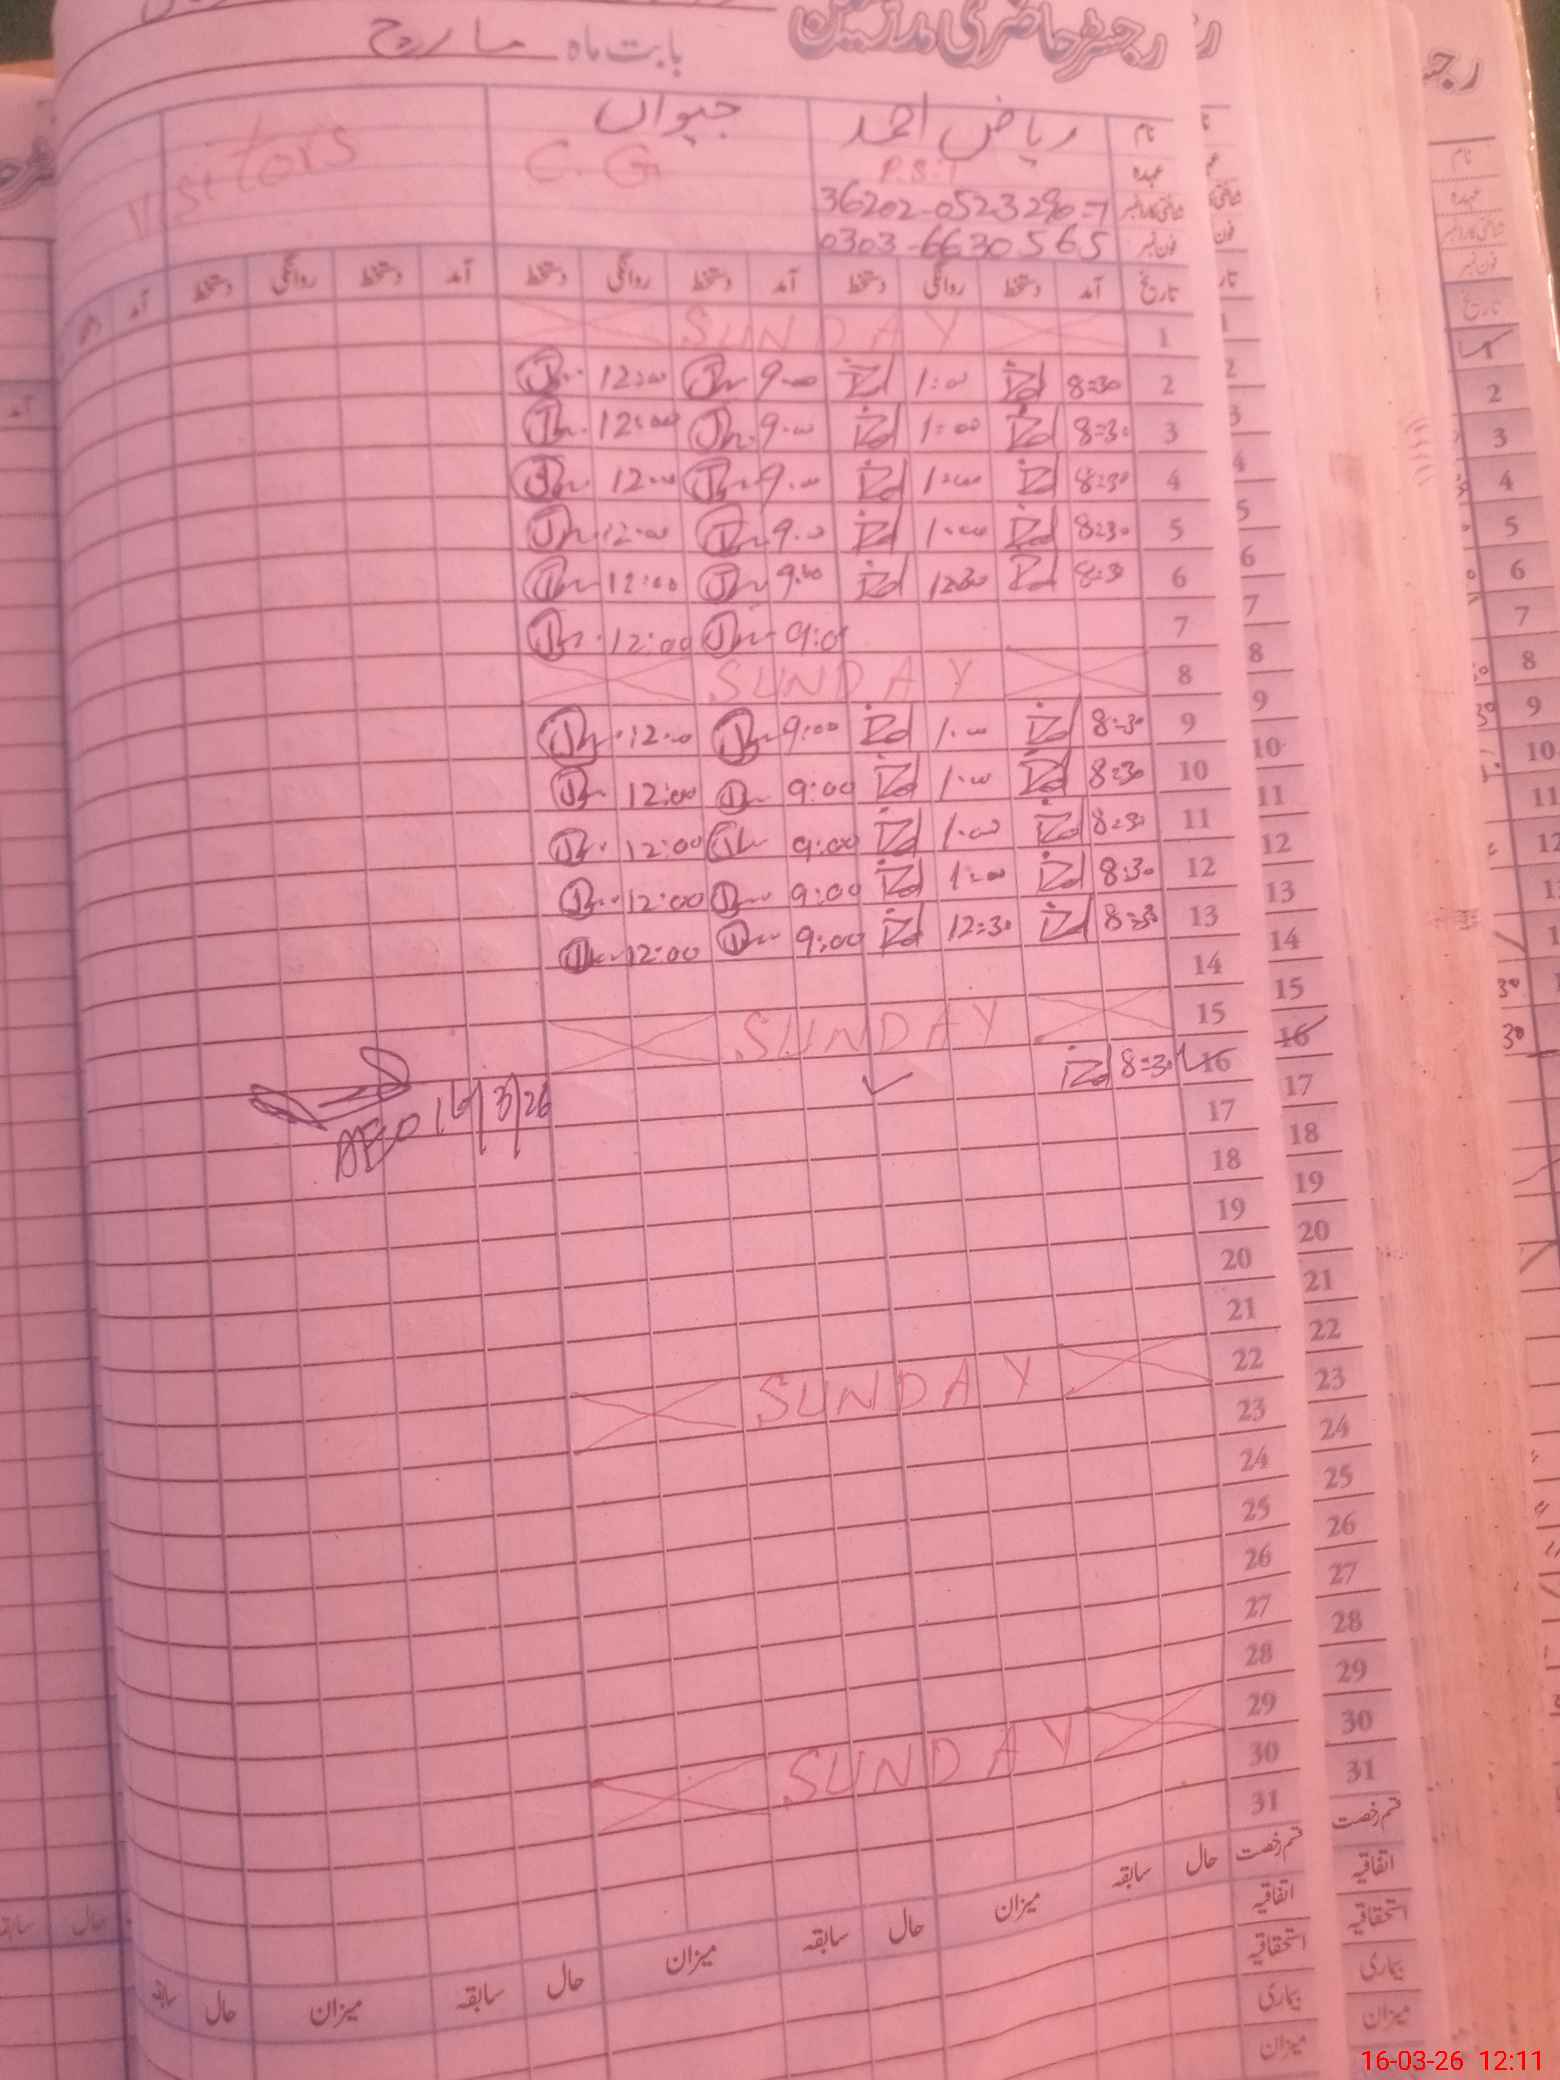 رجسٹر حاضری مدرسین
بابت ماہ مارچ
نام ریاض احمد جیواں Visitors
عہدہ P.S.T C.G
شناختی کارڈ نمبر 36202-0523290-7
فون نمبر 0303-6630565
تاریخ آمد دستخط روانگی دستخط آمد دستخط روانگی دستخط آمد دستخط روانگی دستخط آمد
1 SUNDAY
2 8:30 1:00 9:00 12:00
3 8:30 1:00 9:00 12:00
4 8:30 1:00 9:00 12:00
5 8:30 1:00 9:00 12:00
6 8:30 12:30 9:00 12:00
7 9:00 12:00
8 SUNDAY
9 8:30 1:00 9:00 12:00
10 8:30 1:00 9:00 12:00
11 8:30 1:00 9:00 12:00
12 8:30 1:00 9:00 12:00
13 8:30 12:30 9:00 12:00
14
15 SUNDAY
16 8:30
AEO 16/3/26
17
18
19
20
21
22 SUNDAY
23
24
25
26
27
28
29 SUNDAY
30
31
قسم رخصت حال سابقہ میزان حال سابقہ میزان حال سابقہ میزان حال سابقہ
اتفاقیہ
استحقاقیہ
بیماری
میزان
16-03-26 12:11